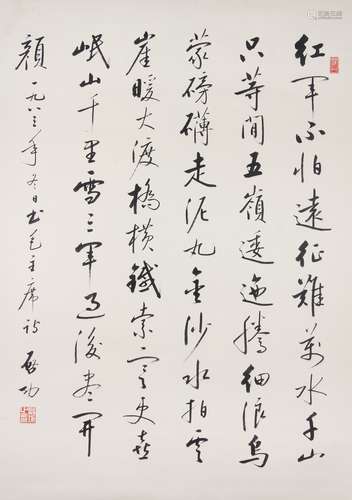 紅軍不怕遠征難萬水千山
只等閒五嶺逶迤騰細浪烏
蒙磅礴走泥丸金沙水拍雲
崖暖大渡橋橫鐵索寒更喜
岷山千里雪三軍過後盡開
顏 一九八三年冬日書毛主席詩 啟功